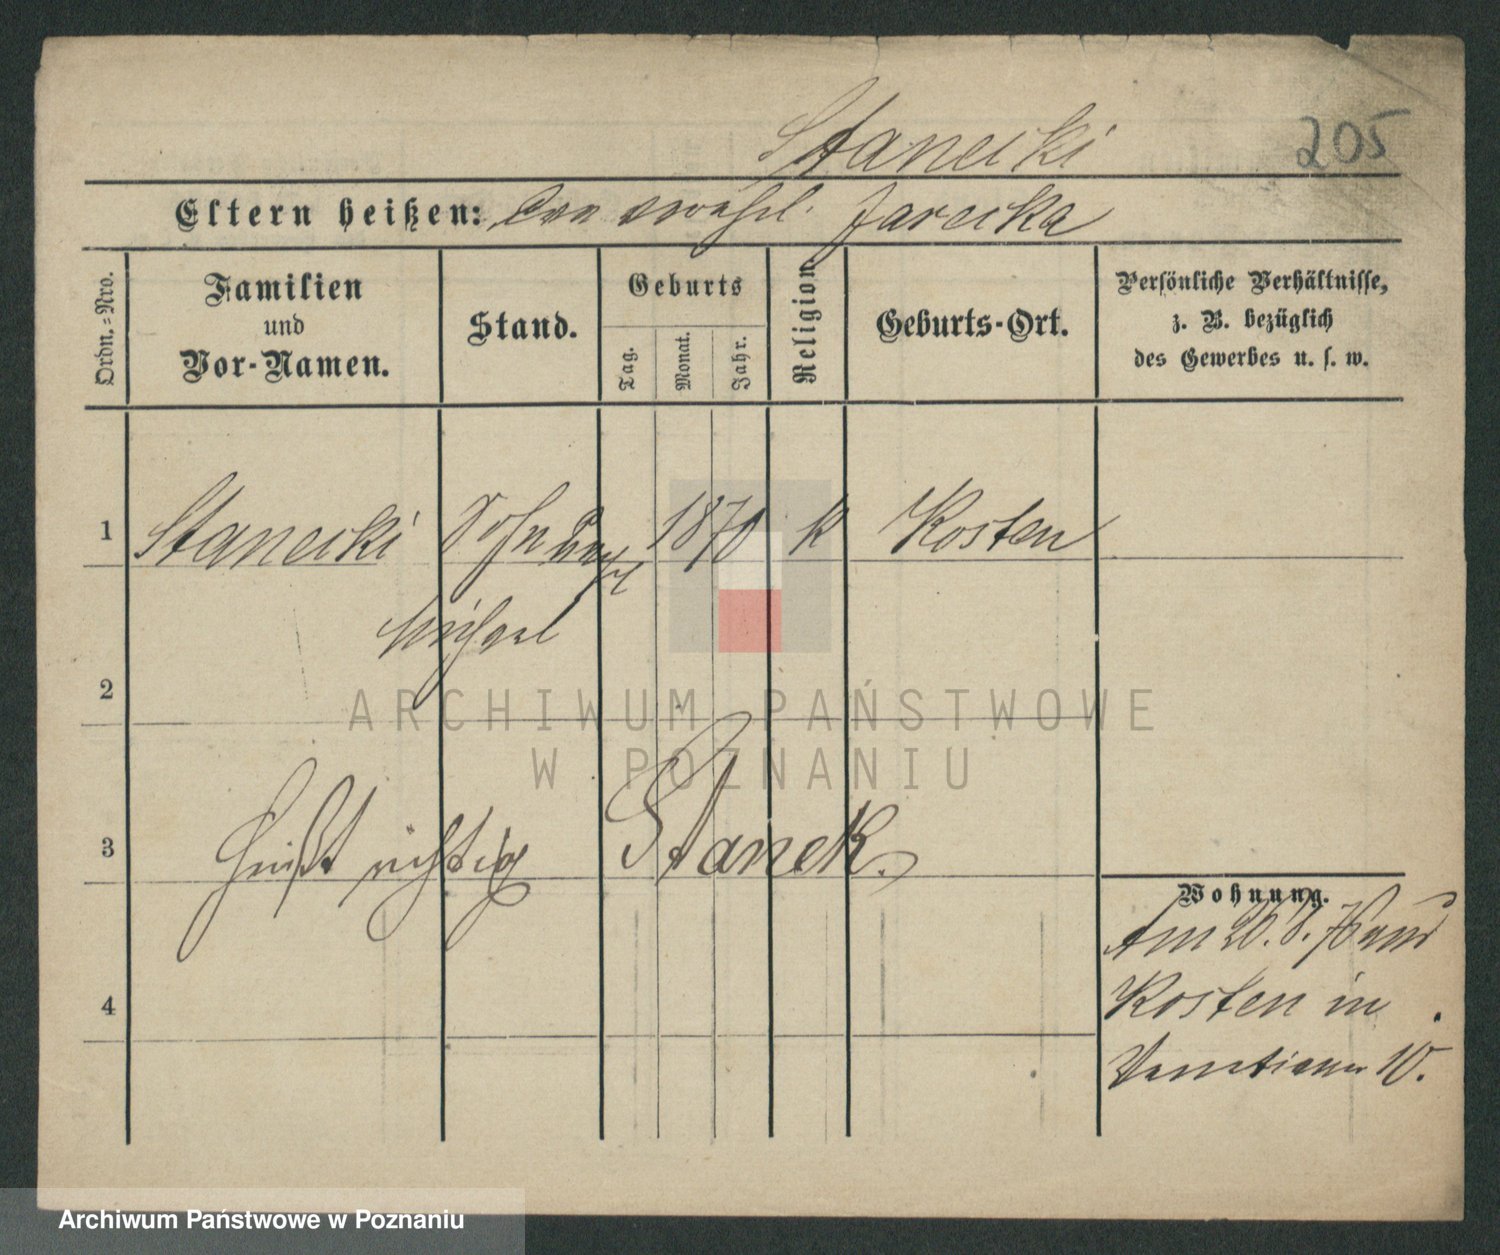 Stanecki 205
Eltern heißen: Jarecka
Ordn.=Nro.
Familien
und
Vor-Namen.
Stand.
Geburts
Tag.
Monat.
Jahr.
Religion
Geburts-Ort.
Persönliche Verhältnisse,
z. B. bezüglich
des Gewerbes u. s. w.
1 Stanecki Sohn 1870 k Kosten
Michael
2
ARCHIWUM PAŃSTWOWE
W POZNANIU
3 heißt richtig Stanek.
Wohnung.
Am 26.8.
4 Kosten in
Venetianer 10.
Archiwum Państwowe w Poznaniu